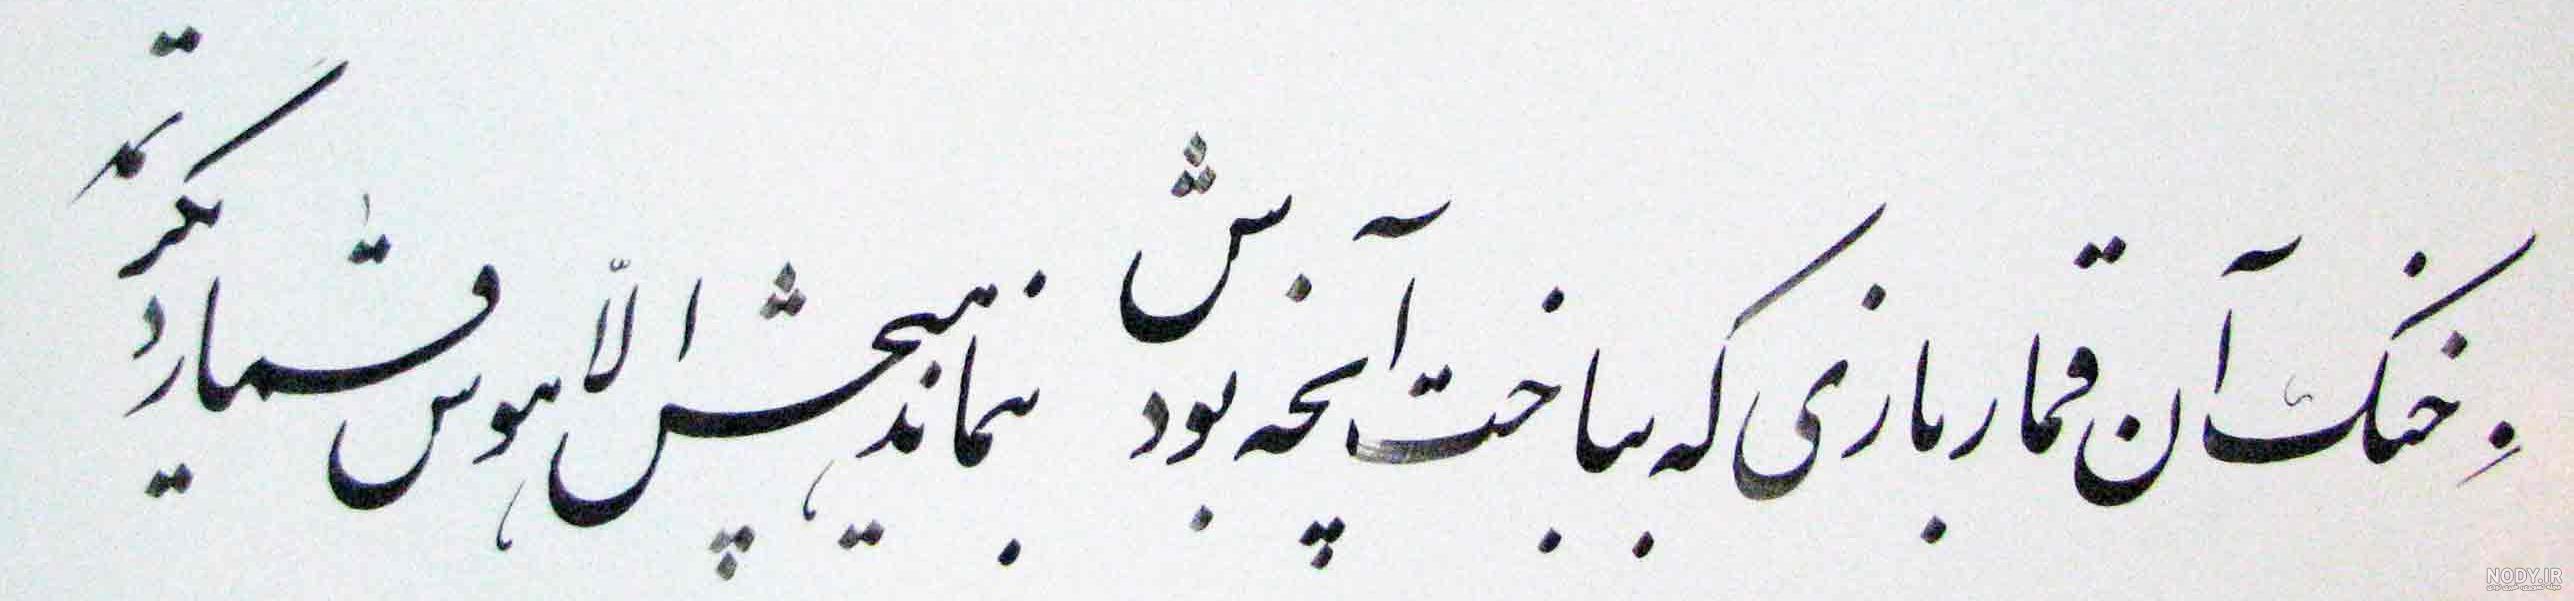 خنک آن قماربازی که بباخت آنچه بودش بنماند هیچش الّا هوس قمار دیگر
تمد
NODY.IR